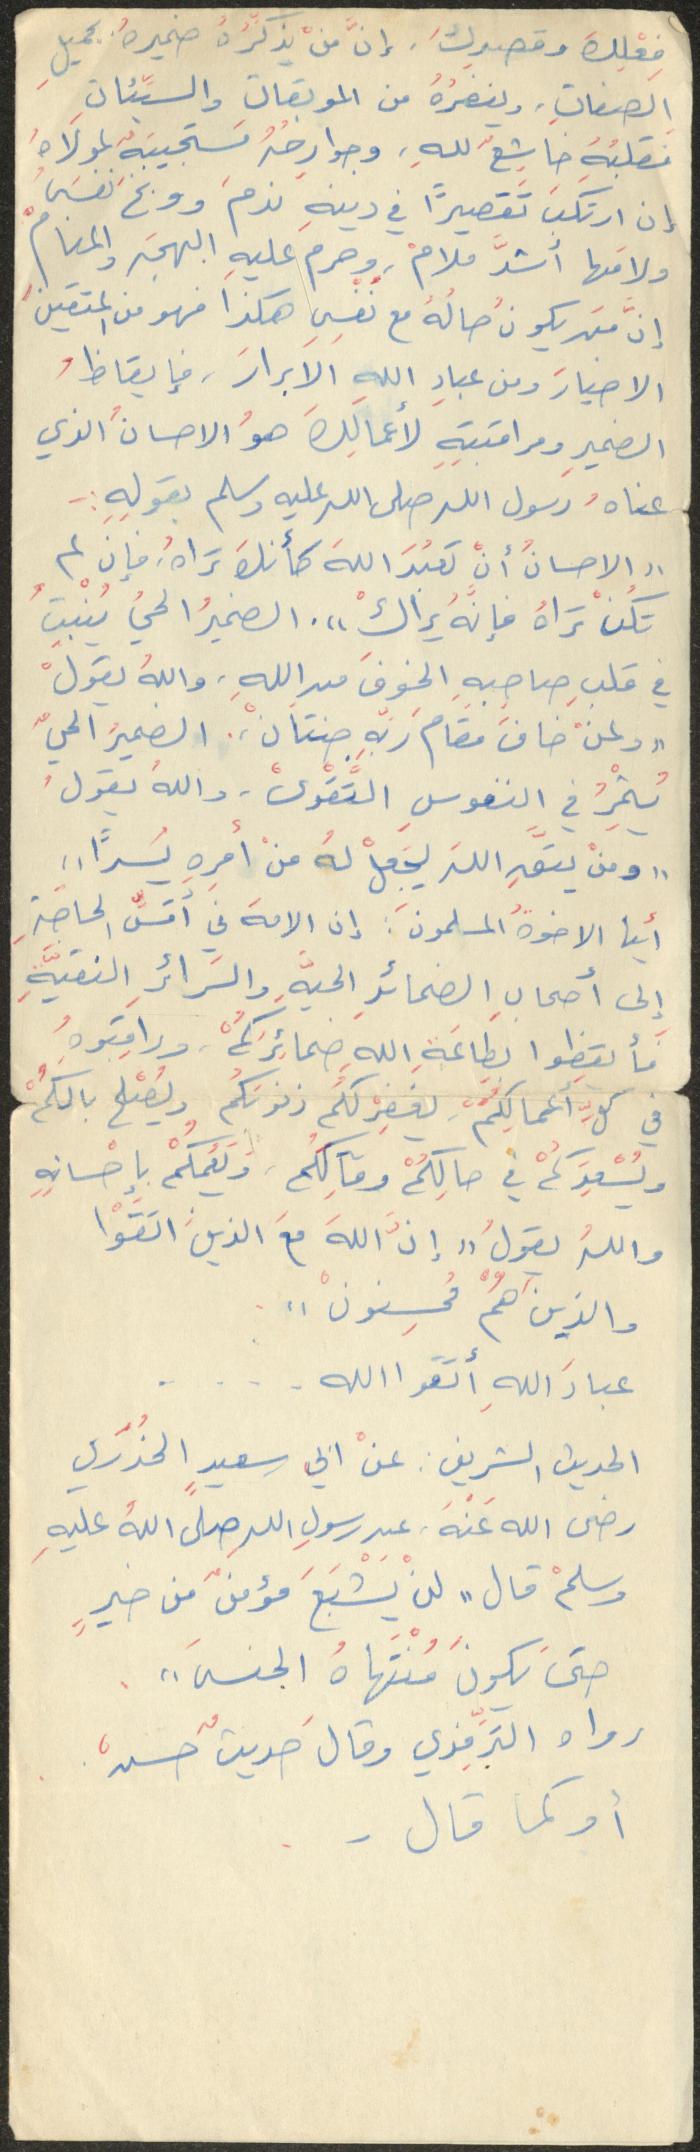 فِعْلِكَ وقصدِكَ، إنَّ مَنْ يذكّرُهُ ضميرهُ بجميلِ
الصفاتِ، وينفرُهُ من الموبقات والسيّئاتِ
فقلبُهُ خاشِعٌ للهِ، وجوارِحُهُ مستجيبةٌ لمولاهُ
إن ارتكبَ تَقصيرًا في دينهِ ندمَ ووبخَ نفسَهُ
ولامَها أشدَّ ملامْ، وحرم عليهِ البهجة والمنامْ
إنَّ من يكونُ حالُهُ مع نفْسِهِ هكذا فهو من المتقينَ
الاخيارَ ومن عبادِ اللهِ الأبرارَ، فإيقاظُ
الضميرِ ومراقبتِهِ لأعمالِكَ هوُ الاحسانُ الذي
عناهُ رسول الله صلى الله عليه وسلم بقولِهِ:-
"الاحسانُ أنْ تَعْبُدَ اللهَ كأنكَ تَرَاهُ، فإن لم
تكُنْ تَرَاهُ فإنَّهُ يراكْ". الضميرُ الحيُ يُنْبِتُ
في قلبِ صاحِبهِ الخوفَ من اللهِ، واللهُ يقولْ
"ولمنْ خافَ مقَامَ رَبّهِ جنتانْ". الضميرُ الحيّ
يُثمِرُ في النفوسِ التَّقْوىْ، واللهُ يقولُ
"ومنْ يتقَّ اللهَ يجعلْ لهُ منْ أمرهِ يُسرًا"
أيها الاخوةُ المسلمونَ: إن الامةَ في أمَسِّ الحاجَةِ
إلى أصحابِ الضمائرِ الحيّةِ والسَرائرِ النقيَّةِ
فأيقظِوا بِطاعَةِ اللهِ ضمائِرَكُمْ، وراقِبوهُ
في كلِّ أعمالِكُمْ، يغفِرْ لكُم ذنوبَكُم ويُصْلح بالكُمْ
ويُسْعِدَكُمْ في حالِكُمْ ومآلِكُم، ويَعُمكُمْ بإحْسانهِ
واللهُ يقولُ "إنَّ اللهَ معَ الذينَ اتَقَوْا
والذينَ هُمْ مُحسِنونْ".
عبادَ اللهِ أتقَوا الله - - . .
الحديث الشريف: عنْ ابي سعيدٍ الخُدْري
رضى الله عَنْهُ، عن رسولِ اللهِ صلى اللهُ عليهِ
وسلمْ قال "لنْ يَشْبَعَ مؤمنٌ من خيرٍ
حتىَ يكونَ مُنْتَهاهُ الجنةَ".
رواه التِرّمِذي وقالَ حديثٌ حسنْ.
أو كما قال -